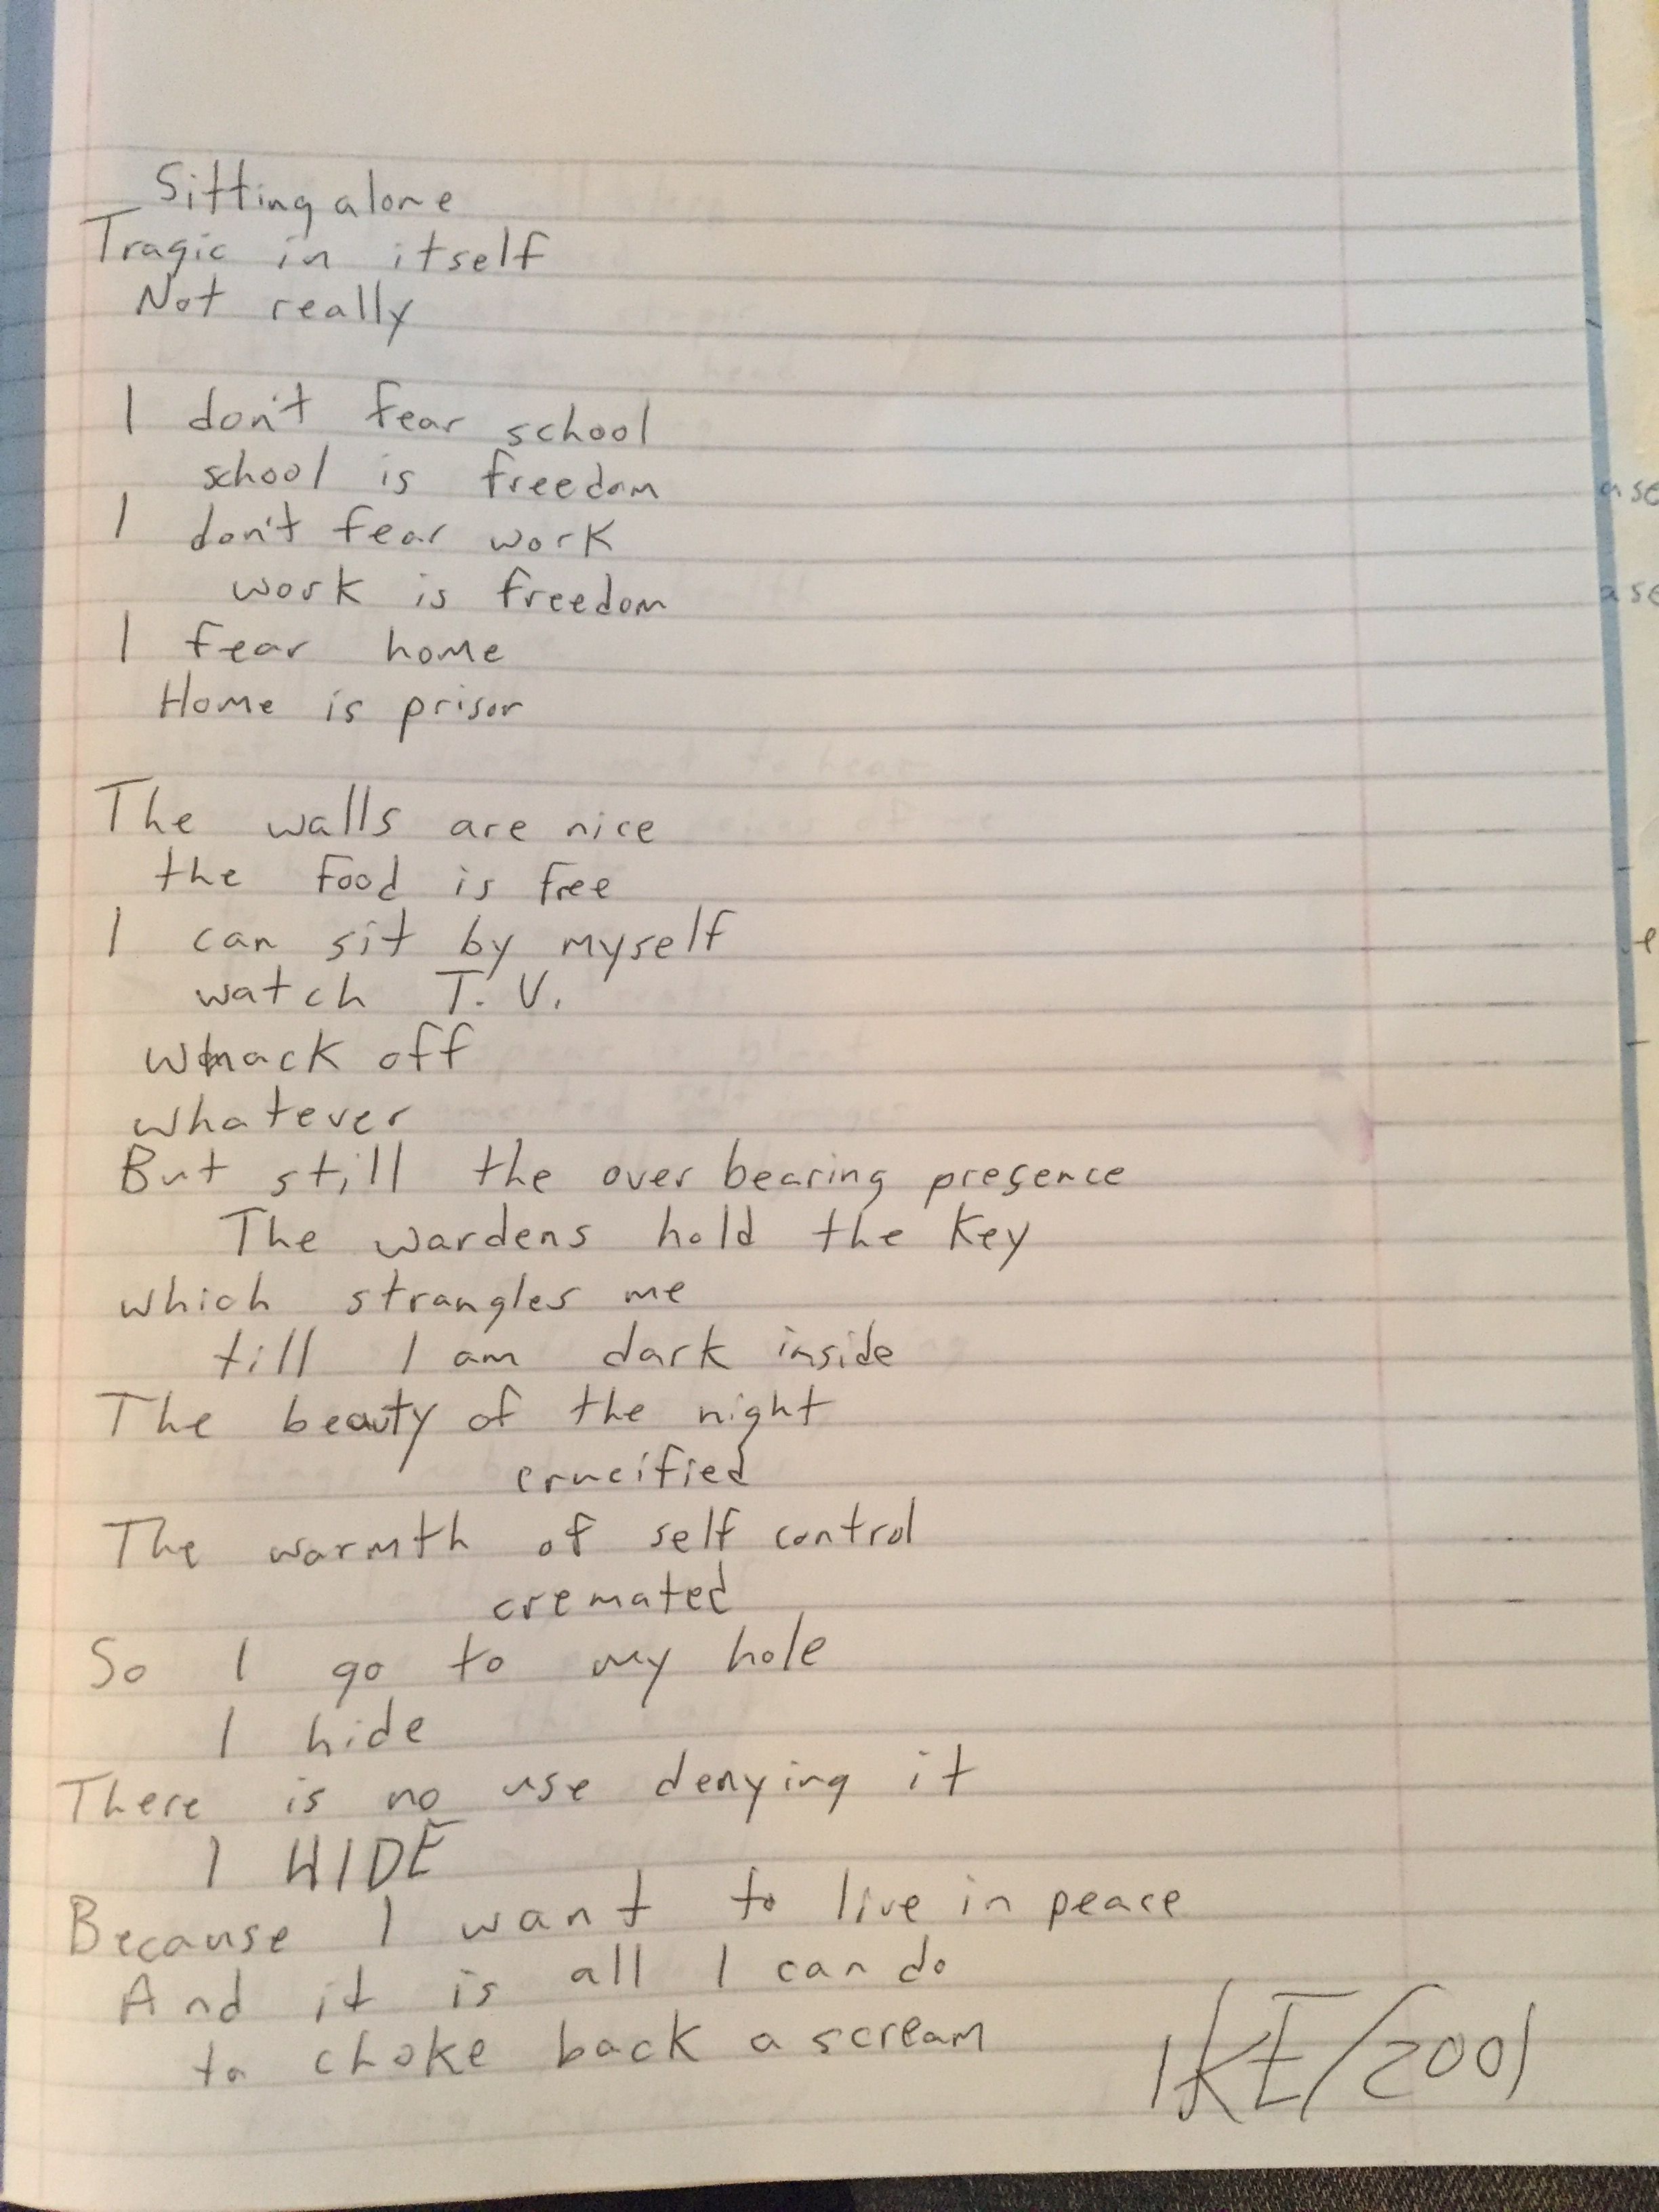 Sitting alone
Tragic in itself
Not really
I don't fear school
school is freedom
I don't fear work
work is freedom
I fear home
Home is prison
The walls are nice
the food is free
I can sit by myself
watch T.V.
whack off
whatever
But still the over bearing presence
The wardens hold the key
which strangles me
till I am dark inside
The beauty of the night
crucified
The warmth of self control
cremated
So I go to my hole
I hide
There is no use denying it
I HIDE
Because I want to live in peace
And it is all I can do
to choke back a scream
IKE/2001